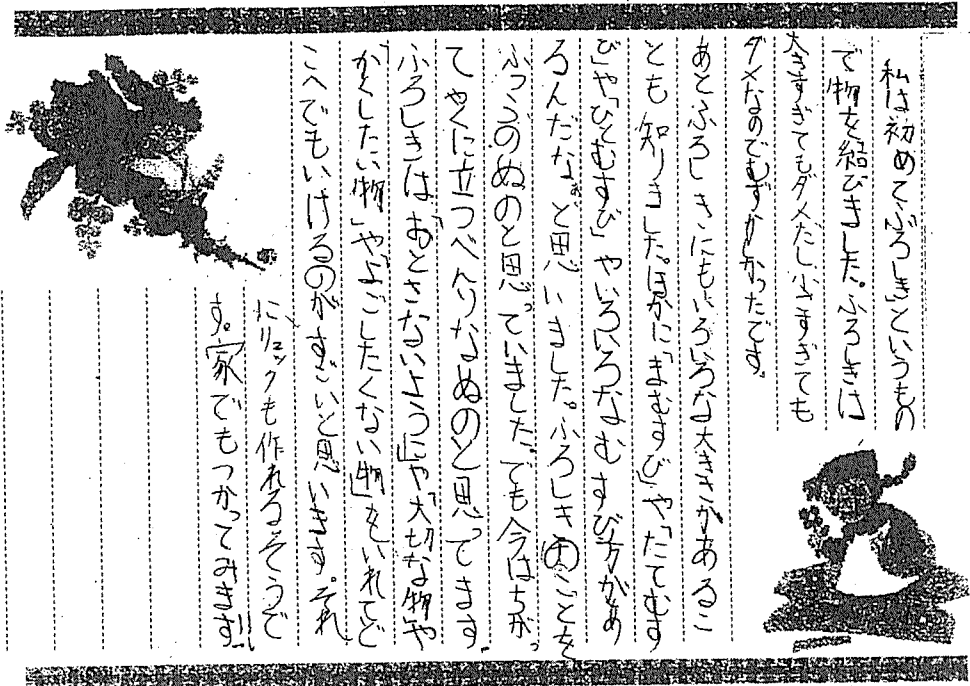 私は初めて「ふろしき」というもの
で物を結びました。ふろしきは
大きすぎてもダメだし小さすぎても
ダメなのでむずかしかったです。
あとふろしきにもいろいろな大きさがあるこ
とも知りました。ほかに「まむすび」や「たてむす
び」や「ひとむすび」やいろいろなむすび方があ
るんだなぁ。と思いました。ふろしきのことを
ふつうのぬのと思っていました。でも今はちがっ
てやくに立つべんりなぬのと思ってます。
ふろしきは、「おとさないように」や「大切な物」や
「かくしたい物」や「よごしたくない物」をいれてど
こへでもいけるのがすごいと思います。それ
に、リュックも作れるそうで
す。家でもつかってみます!!